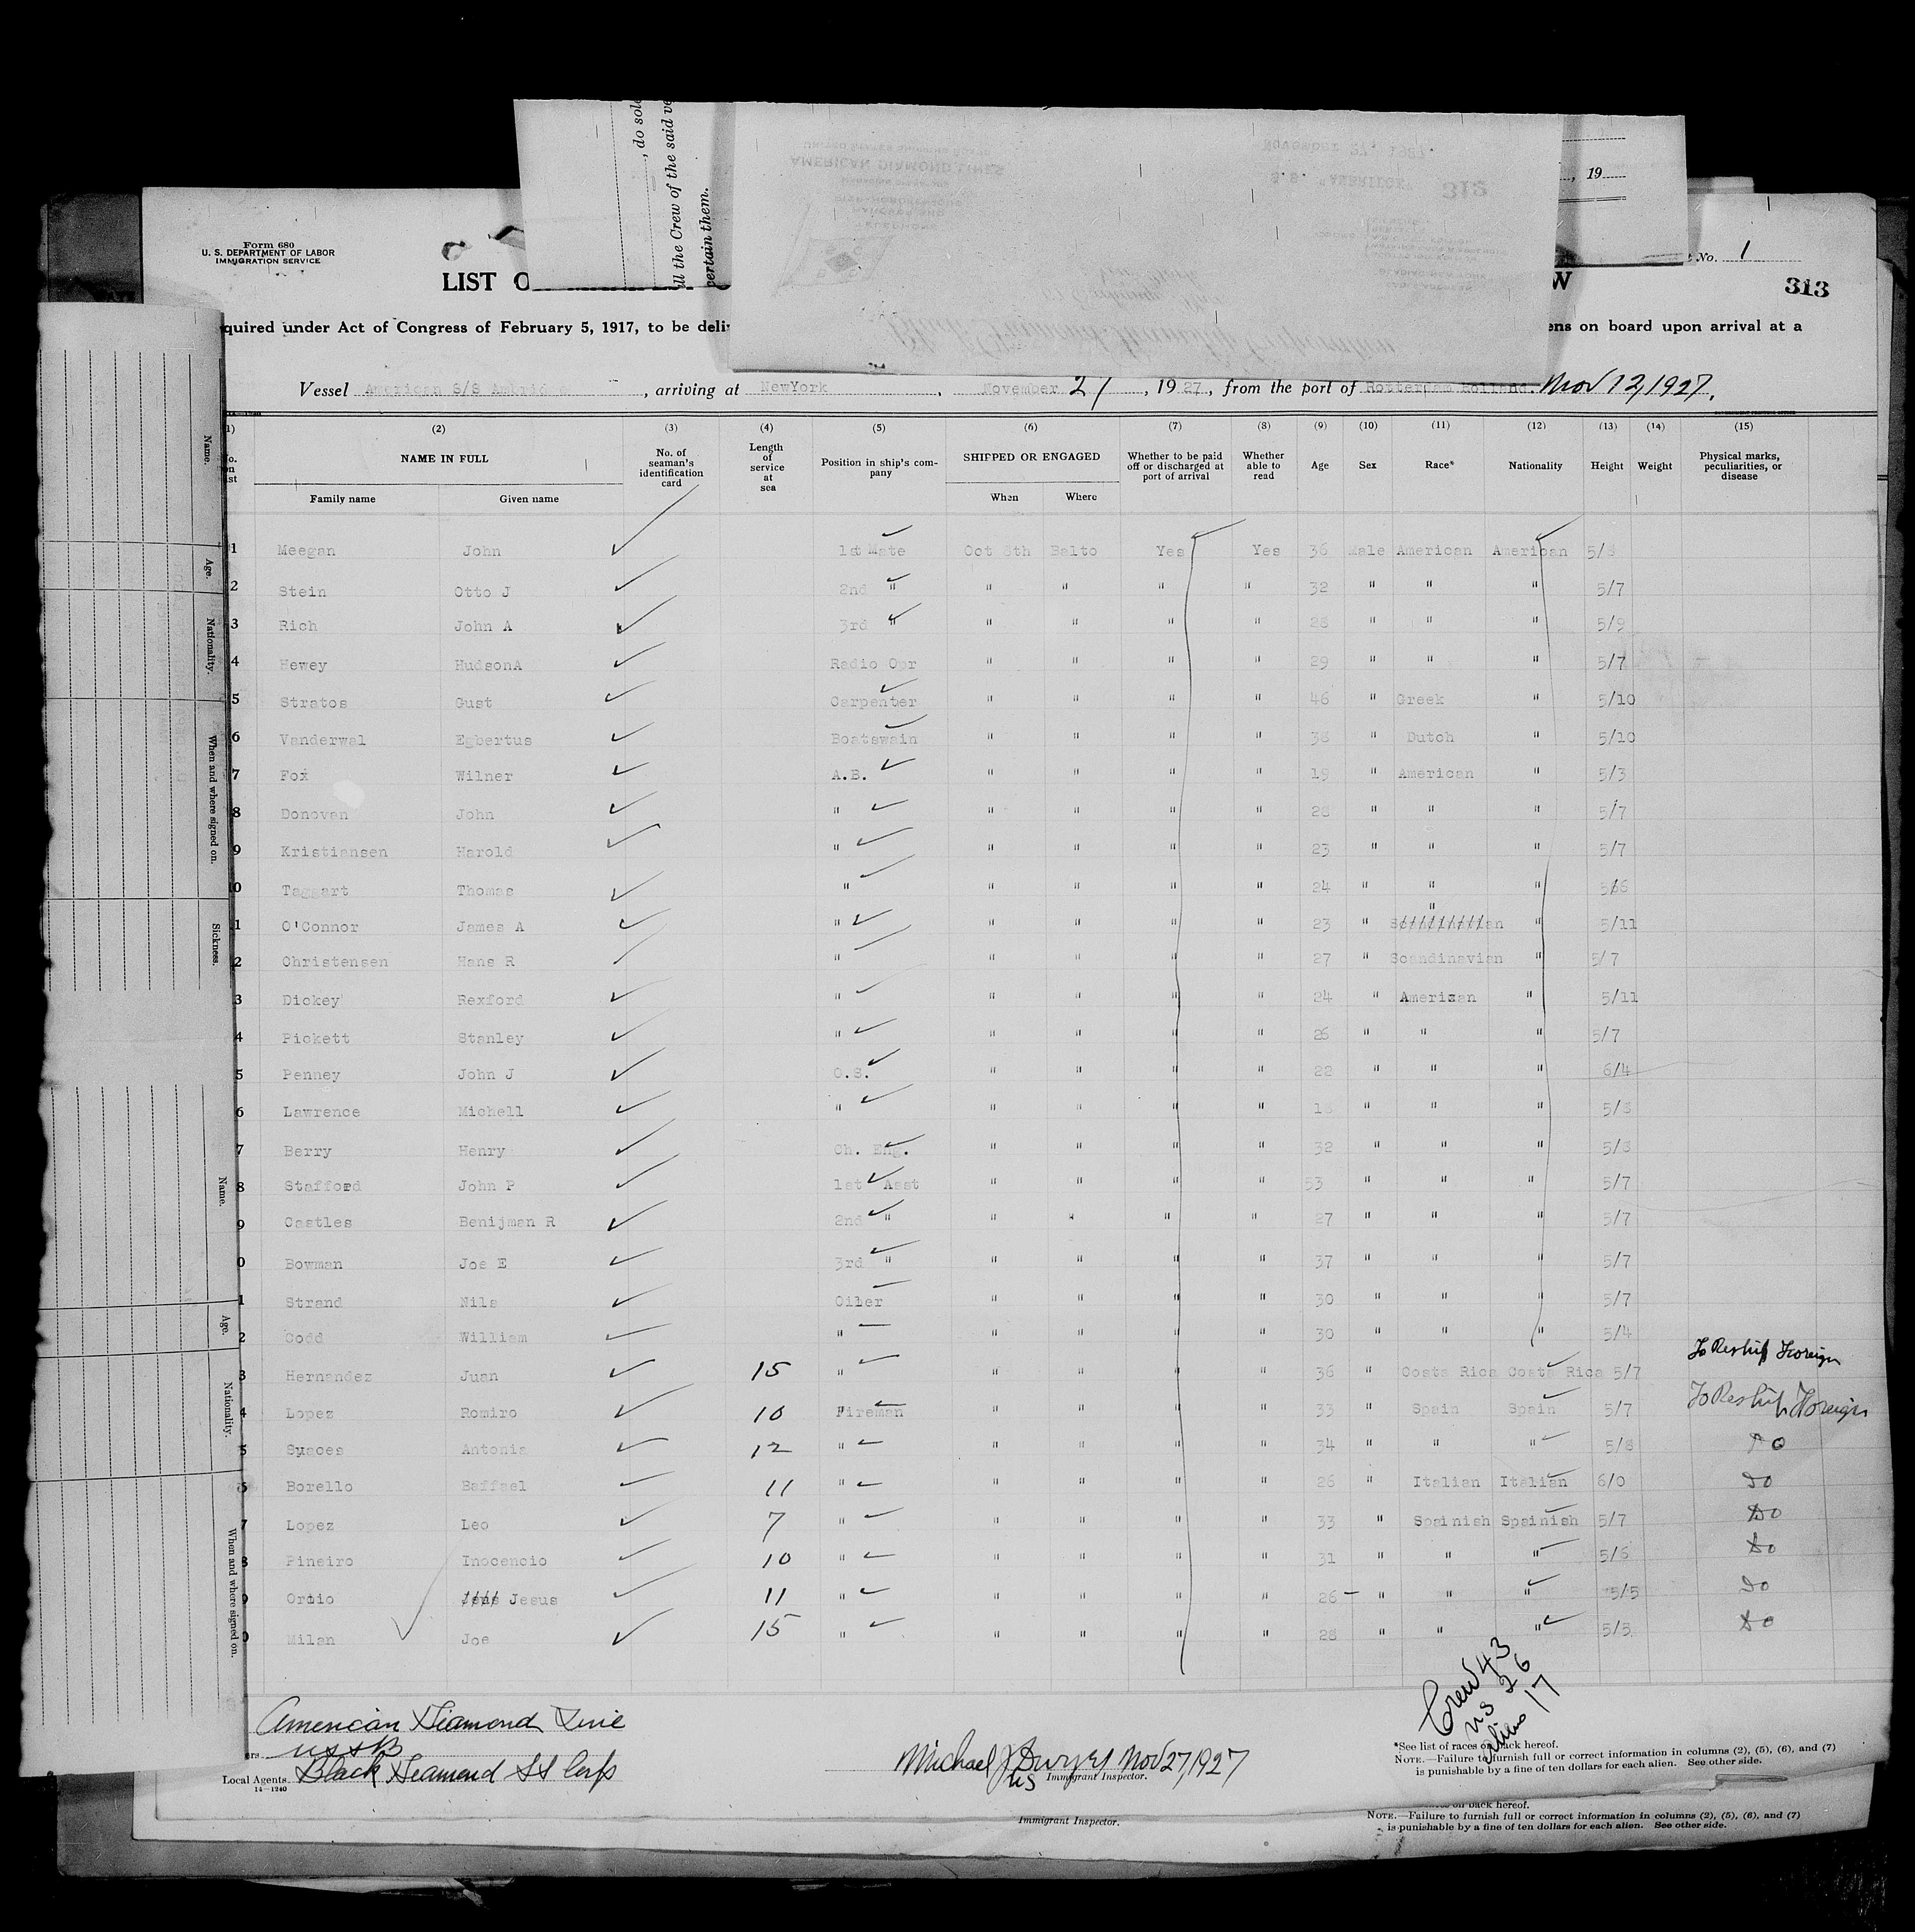 , do sole
ll the Crew of the said ve
certain them.
UNITED STATES SHIPPING BOARD
AMERICAN DIAMOND LINES
November 27, 1927.
S.S. "AMBRIDGE"
312
, 19
Form 680
U. S. DEPARTMENT OF LABOR
IMMIGRATION SERVICE
LIST O
W
No. 1
313
quired under Act of Congress of February 5, 1917, to be deli
ens on board upon arrival at a
Vessel American S/S Ambridge, arriving at NewYork, November 27, 1927, from the port of Rotterdam Holland. Nov 12, 1927.
(2) (3) (4) (5) (6) (7) (8) (9) (10) (11) (12) (13) (14) (15)
NAME IN FULL
Family name Given name
No. of seaman's identification card
Length of service at sea
Position in ship's company
SHIPPED OR ENGAGED
When Where
Whether to be paid off or discharged at port of arrival
Whether able to read
Age Sex Race* Nationality Height Weight
Physical marks, peculiarities, or disease
1 Meegan John 1st Mate Oct 8th Balto Yes Yes 36 Male American American 5/8
2 Stein Otto J 2nd " " " " " 32 " " " 5/7
3 Rich John A 3rd " " " " " 28 " " " 5/9
4 Hewey HudsonA Radio Opr " " " " 29 " " " 5/7
5 Stratos Gust Carpenter " " " " 46 " Greek " 5/10
6 Vanderwal Egbertus Boatswain " " " " 38 " Dutch " 5/10
7 Fox Wilner A.B. " " " " 19 " American " 5/3
8 Donovan John " " " " " 28 " " " 5/7
9 Kristiansen Harold " " " " " 23 " " " 5/7
0 Taggart Thomas " " " " " 24 " " "
1 O'Connor James A " " " " " 23 " " " 5/11
2 Christensen Hans R " " " " " 27 " Scandinavian " 5/7
3 Dickey Rexford " " " " " 24 " American " 5/11
4 Pickett Stanley " " " " " 26 " " " 5/7
5 Penney John J O.S. " " " " 22 " " " 6/4
6 Lawrence Michell " " " " " " " " 5/8
7 Berry Henry Ch. Eng. " " " " 32 " " " 5/8
8 Stafford John P 1st Asst " " " " 53 " " " 5/7
9 Castles Benijman R 2nd " " " " " 27 " " " 5/7
0 Bowman Joe E 3rd " " " " " 37 " " " 5/7
1 Strand Nils Oiler " " " " 30 " " " 5/7
2 Codd William " " " " " 30 " " " 5/4
3 Hernandez Juan 15 " " " " " 36 " Costa Rica Costa Rica 5/7 To Reship Foreign
4 Lopez Romiro 10 Fireman " " " " 33 " Spain Spain 5/7 To Reship Foreign
5 Suaces Antonia 12 " " " " " 34 " " " 5/8 Do
Borello Raffael 11 " " " " " 26 " Italian Italian 6/0 Do
7 Lopez Leo 7 " " " " " 33 " Spainish Spainish 5/7 Do
8 Pineiro Inocencio 10 " " " " " 31 " " " 5/6 Do
9 Ortio Jesus 11 " " " " " 26 " " " 5/5 Do
0 Milan Joe 15 " " " " " 28 " " " 5/3 Do
Crew 43
US 26
Aliens 17
American Diamond Line
ers USSB
Local Agents. Black Diamond SS Corp
14—1240
Michael J Dwyer Nov 27, 1927
US Immigrant Inspector.
*See list of races on back hereof.
NOTE.—Failure to furnish full or correct information in columns (2), (5), (6), and (7)
is punishable by a fine of ten dollars for each alien. See other side.
on back hereof.
Immigrant Inspector.
NOTE.—Failure to furnish full or correct information in columns (2), (5), (6), and (7)
is punishable by a fine of ten dollars for each alien. See other side.
Name.
Age.
Nationality.
When and where signed on.
Sickness.
Name.
Age.
Nationality.
When and where signed on.